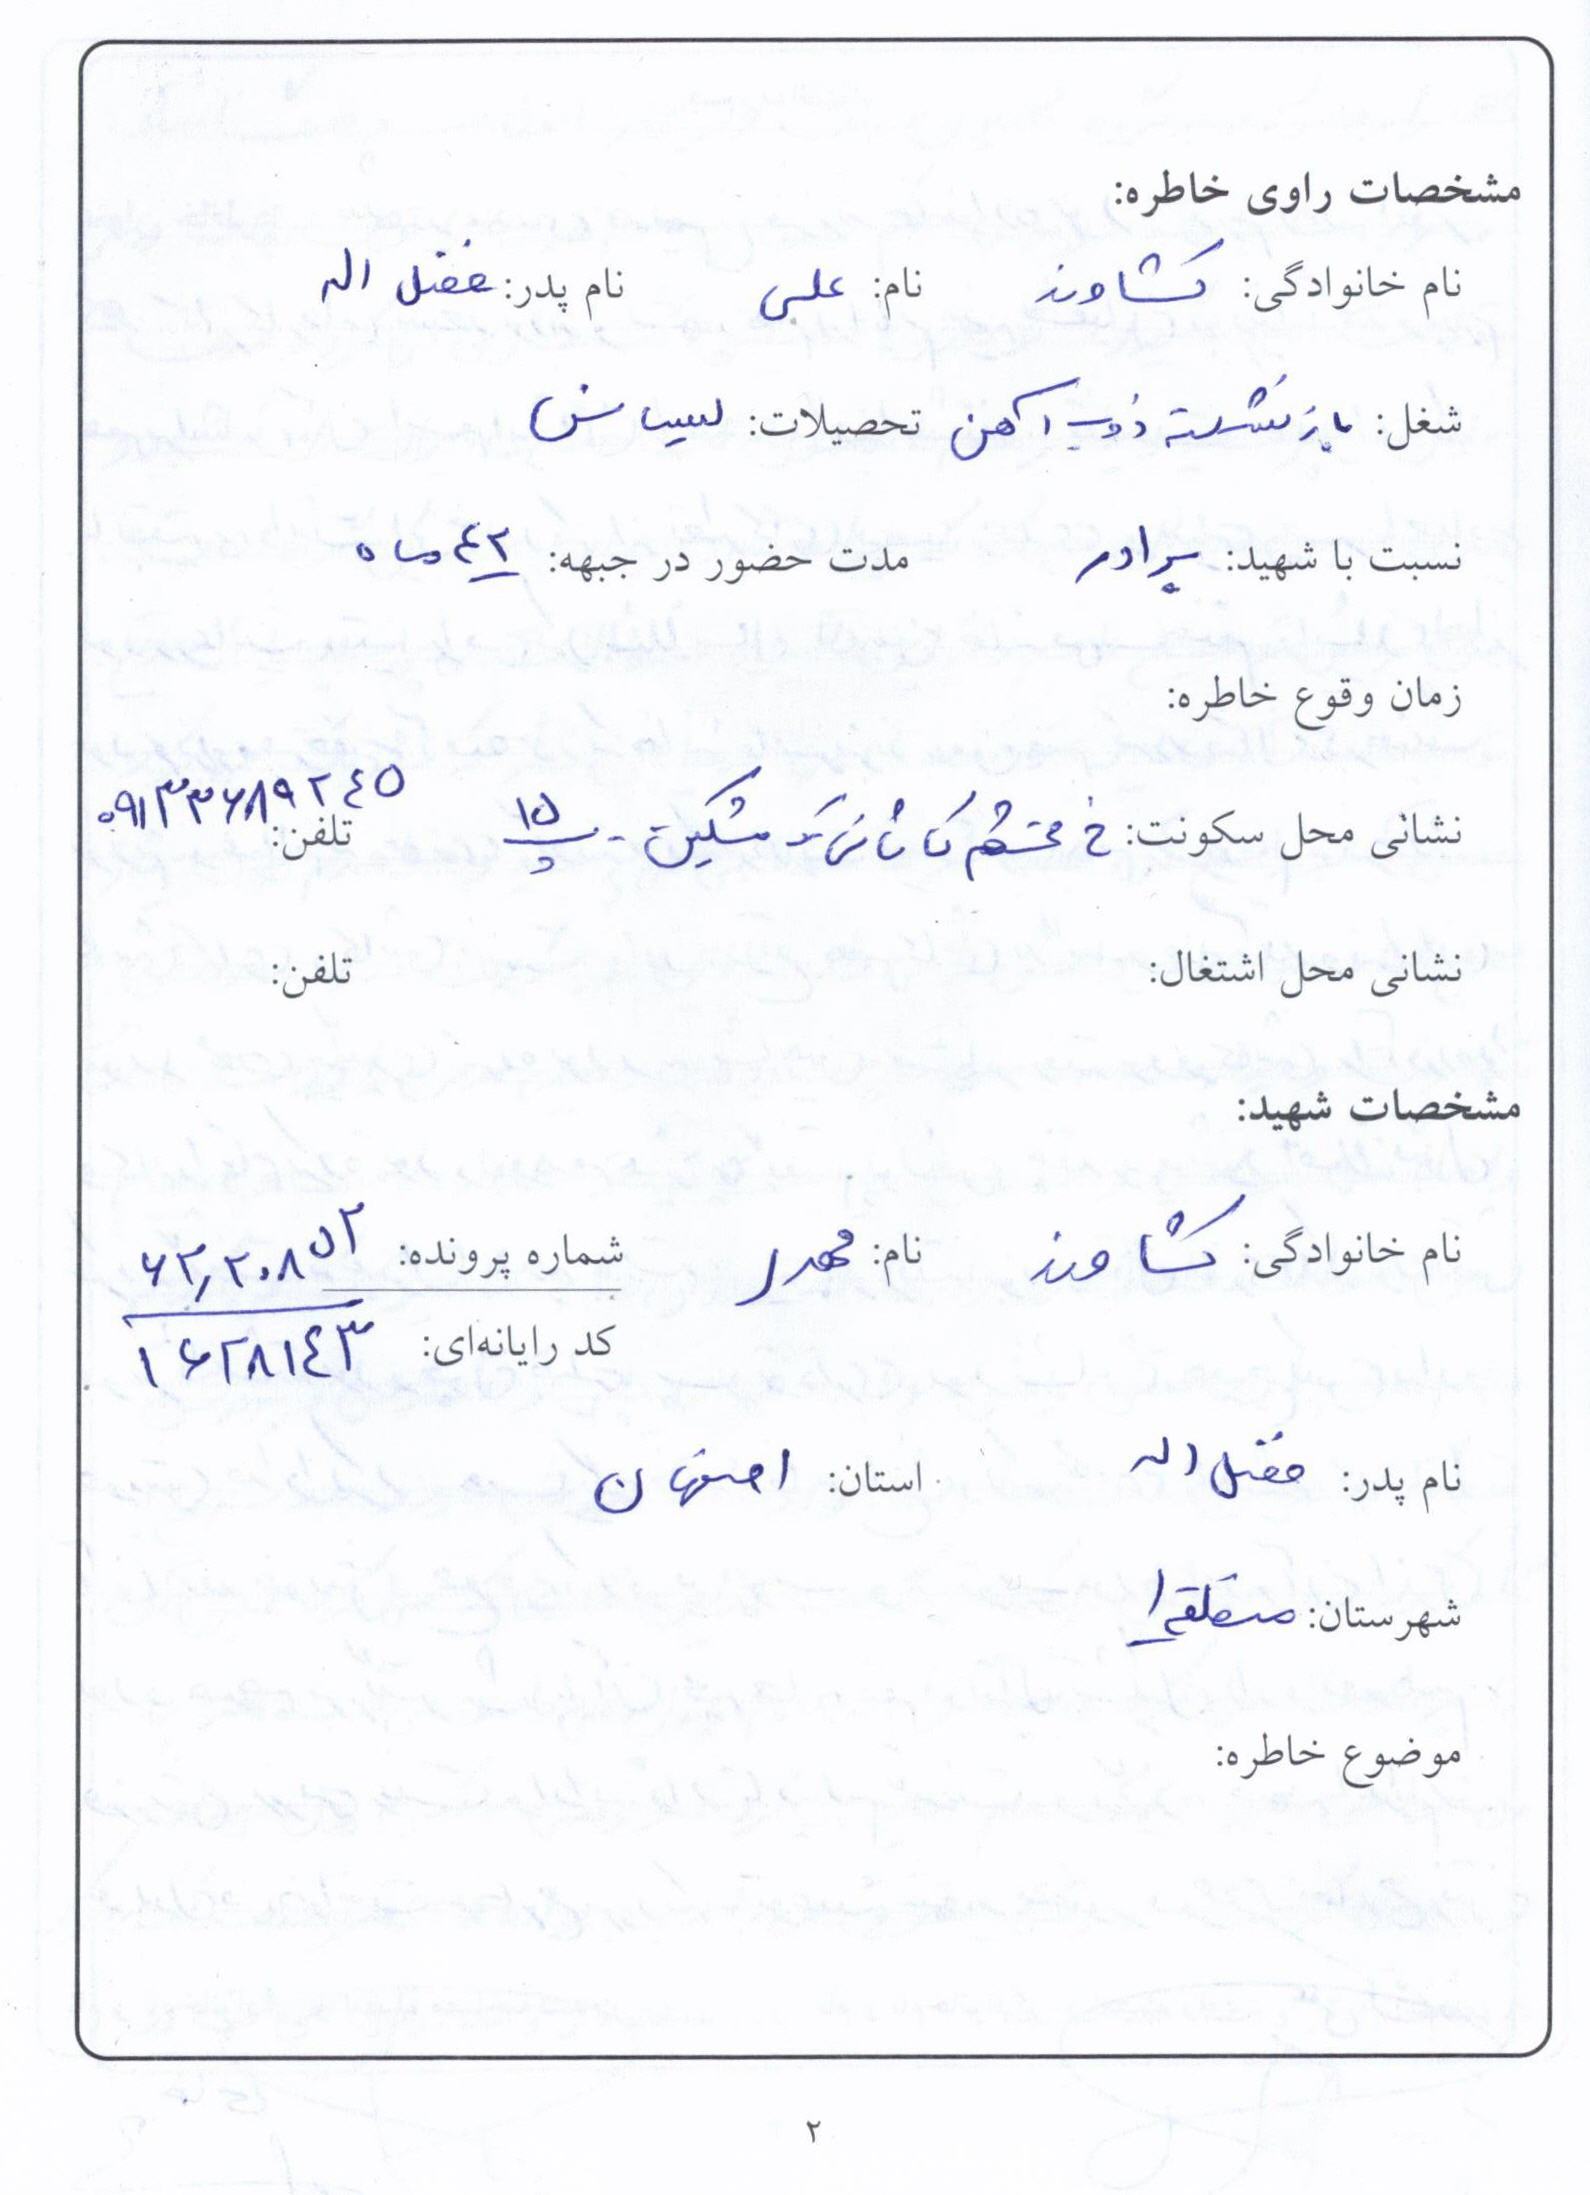 مشخصات راوی خاطره:
نام خانوادگی: کشاورز نام: علی نام پدر: فضل اله
شغل: بازنشسته ذوب آهن تحصیلات: لیسانس
نسبت با شهید: برادر مدت حضور در جبهه: ٤٢ ماه
زمان وقوع خاطره:
نشانی محل سکونت: خ محتشم کاشانی مشکین - پ ١٥ تلفن: ٠٩١٣٣٦٨٩٢٤٥
نشانی محل اشتغال: تلفن:
مشخصات شهید:
نام خانوادگی: کشاورز نام: شماره پرونده: ٦٢٫٢٠٨٥٢
کد رایانه‌ای: ١٦٢٨١٤٣
نام پدر: فضل اله استان: اصفهان
شهرستان: منطقه ١
موضوع خاطره:
٢